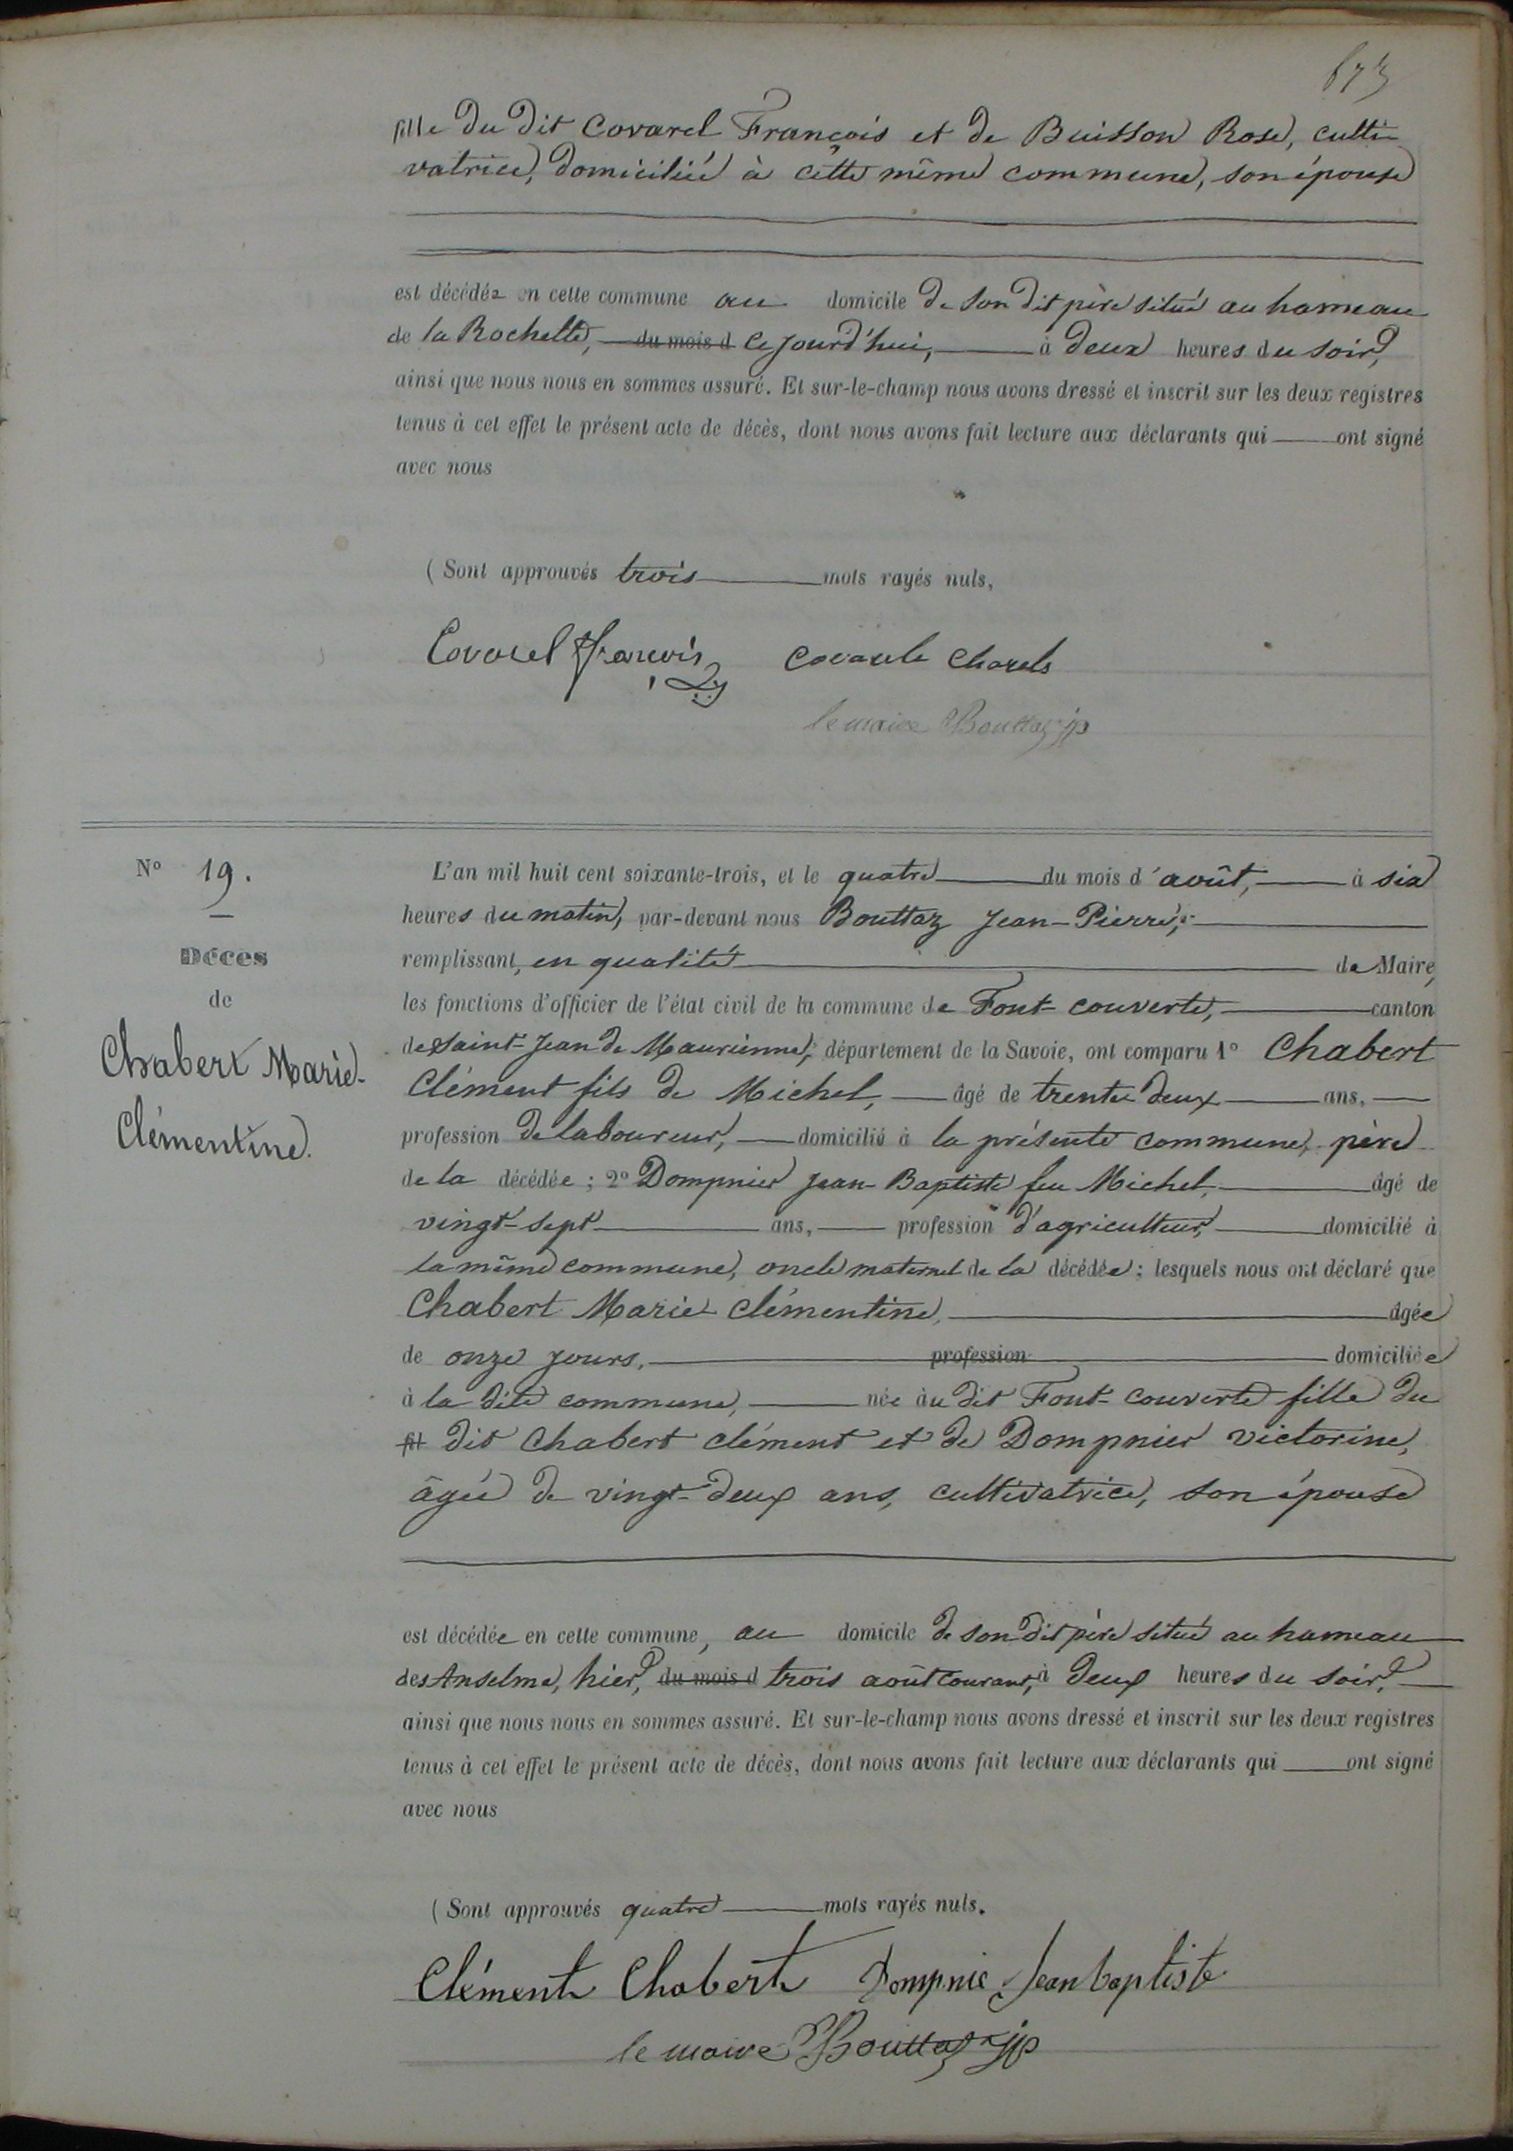 673
fille du dit Covarel François et de Buisson Rose, culti
vatrice, domiciliée à cette même commune, son épouse
est décédée en cette commune au domicile de son dit père situé au hameau
de la Rochette, du mois d ce jourd'hui, à deux heures du soir,
ainsi que nous nous en sommes assuré. Et sur-le-champ nous avons dressé et inscrit sur les deux registres
tenus à cet effet le présent acte de décès, dont nous avons fait lecture aux déclarants qui ont signé
avec nous
(Sont approuvés trois mots rayés nuls,
Covarel françois Covarele Charels
le maire Bouttaz jp
N° 19.
Décès
de
Chabert Marie-
Clémentine.
L'an mil huit cent soixante-trois, et le quatre du mois d'août, à six
heures du matin, par-devant nous Bouttaz Jean-Pierre,
remplissant, en qualité de Maire,
les fonctions d'officier de l'état civil de la commune de Font-couverte, canton
de Saint-Jean de Maurienne, département de la Savoie, ont comparu 1° Chabert
Clément fils de Michel, âgé de trente deux ans,
profession de laboureur, domicilié à la présente commune, père
de la décédée ; 2° Dompnier Jean-Baptiste feu Michel, âgé de
vingt-sept ans, profession d'agriculteur, domicilié à
la même commune, oncle maternel de la décédée ; lesquels nous ont déclaré que
Chabert Marie Clémentine, âgée
de onze jours, profession domiciliée
à la dite commune, née au dit Font-couverte fille du
dit Chabert Clément et de Dompnier victorine,
âgée de vingt-deux ans, cultivatrice, son épouse
est décédée en cette commune, au domicile de son dit père situé au hameau
des Anselme, hier, du mois d trois août courant, à deux heures du soir,
ainsi que nous nous en sommes assuré. Et sur-le-champ nous avons dressé et inscrit sur les deux registres
tenus à cet effet le présent acte de décès, dont nous avons fait lecture aux déclarants qui ont signé
avec nous
(Sont approuvés quatre mots rayés nuls.
Clément Chabert Dompnie Jean baptiste
le maire Bouttaz jp